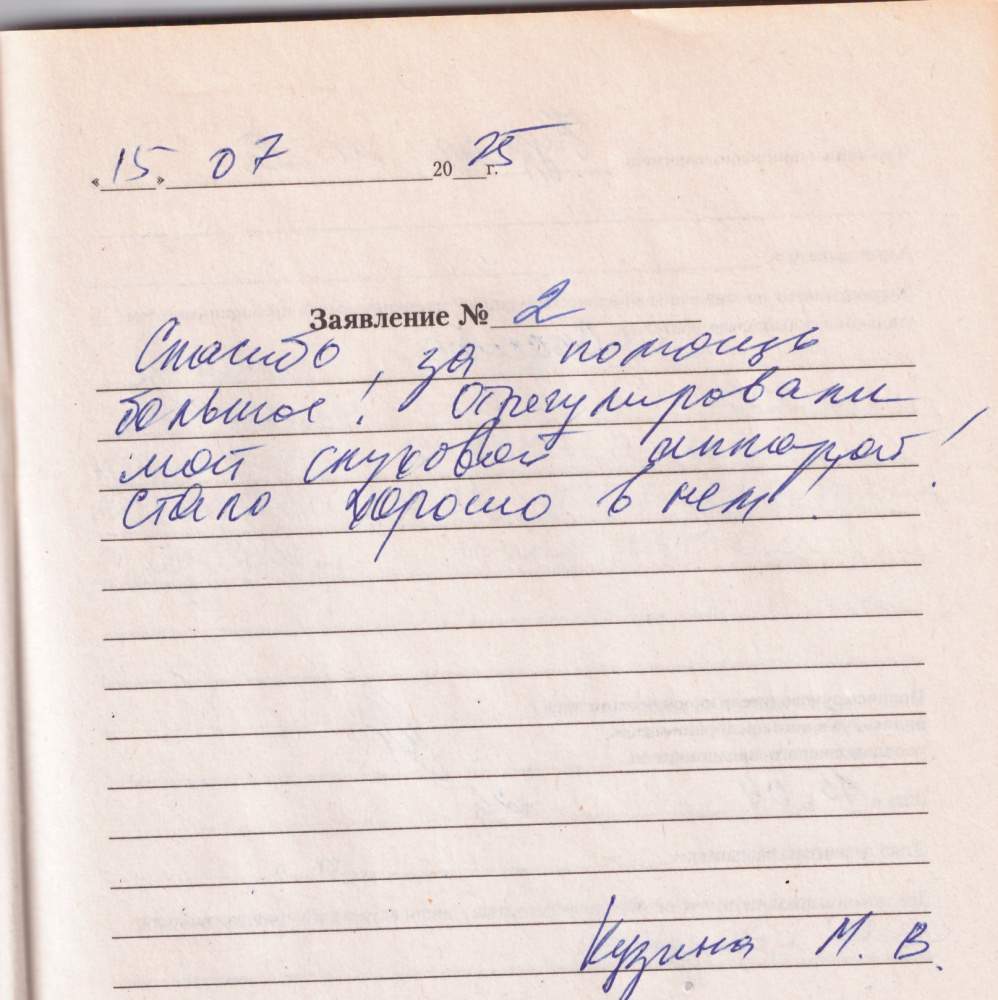 «15» 07 2025 г.
Заявление № 2
Спасибо, за помощь
большое! Отрегулировали
мой слуховой аппарат!
стало хорошо в нем!
Кузина М. В.